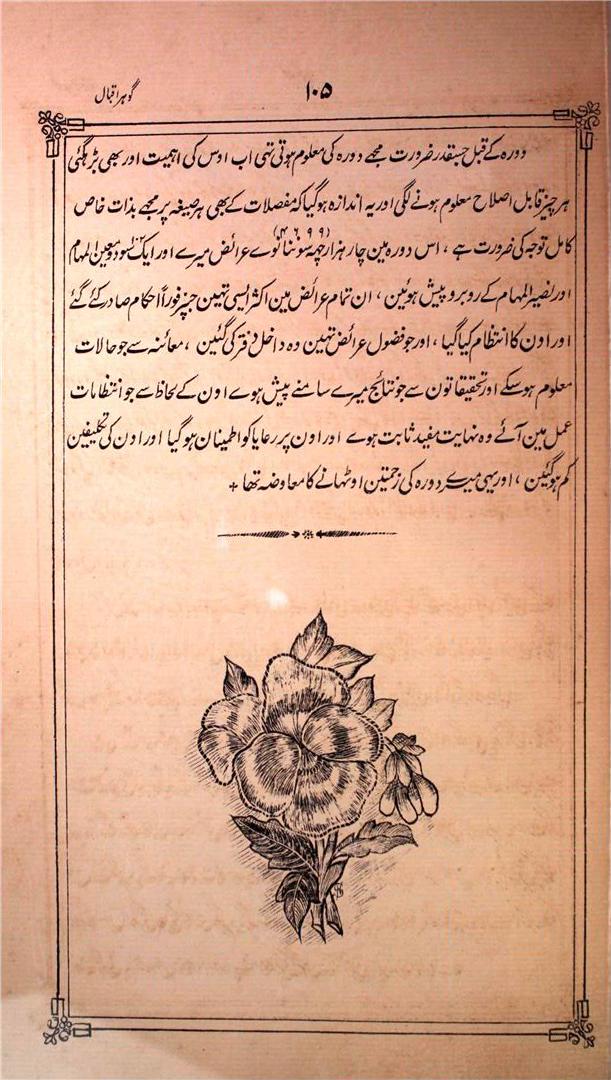 ۱۰۵
گوہر اقبال
دورہ کے قبل جسقدر ضرورت مجھے دورہ کی معلوم ہوتی تہی اب اوس کی اہمیت اور بھی بڑہگئی
ہر چیز قابل اصلاح معلوم ہونے لگی اور یہ اندازہ ہوگیا کہ مفصلات کے بھی ہر صیغہ پر مجھے بذات خاص
کامل توجہ کی ضرورت ہے ، اس دورہ مین چار ہزار چہہ سو ننانوے (۴۶۹۹) عرائض میرے اور ایک سو دو معین المہام
اور نصیر المہام کے روبرو پیش ہوئین ، ان تمام عرائض مین اکثر ایسی تہین جنپر فوراً احکام صادر کئے گئے
اور اون کا انتظام کیا گیا ، اور جو فضول عرائض تہین وہ داخل دفتر کی گئین ، معائنہ سے جو حالات
معلوم ہوسکے اور تحقیقاتون سے جو نتائج میرے سامنے پیش ہوے اون کے لحاظ سے جو انتظامات
عمل مین آئے وہ نہایت مفید ثابت ہوے اور اون پر رعایا کو اطمینان ہوگیا اور اون کی تکلیفین
کم ہوگئین ، اور یہی میرے دورہ کی زحمتین اوٹہانے کا معاوضہ تہا +